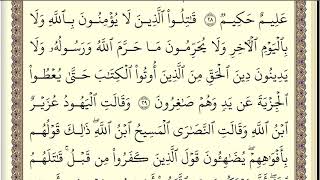 عَلِيمٌ حَكِيمٌ ٢٨ قَٰتِلُوا۟ ٱلَّذِينَ لَا يُؤْمِنُونَ بِٱللَّهِ وَلَا
بِٱلْيَوْمِ ٱلْءَاخِرِ وَلَا يُحَرِّمُونَ مَا حَرَّمَ ٱللَّهُ وَرَسُولُهُۥ وَلَا
يَدِينُونَ دِينَ ٱلْحَقِّ مِنَ ٱلَّذِينَ أُوتُوا۟ ٱلْكِتَٰبَ حَتَّىٰ يُعْطُوا۟
ٱلْجِزْيَةَ عَن يَدٍ وَهُمْ صَٰغِرُونَ ٢٩ وَقَالَتِ ٱلْيَهُودُ عُزَيْرٌ
ٱبْنُ ٱللَّهِ وَقَالَتِ ٱلنَّصَٰرَى ٱلْمَسِيحُ ٱبْنُ ٱللَّهِ ۖ ذَٰلِكَ قَوْلُهُم
بِأَفْوَٰهِهِمْ ۖ يُضَٰهِـُٔونَ قَوْلَ ٱلَّذِينَ كَفَرُوا۟ مِن قَبْلُ ۚ قَٰتَلَهُمُ